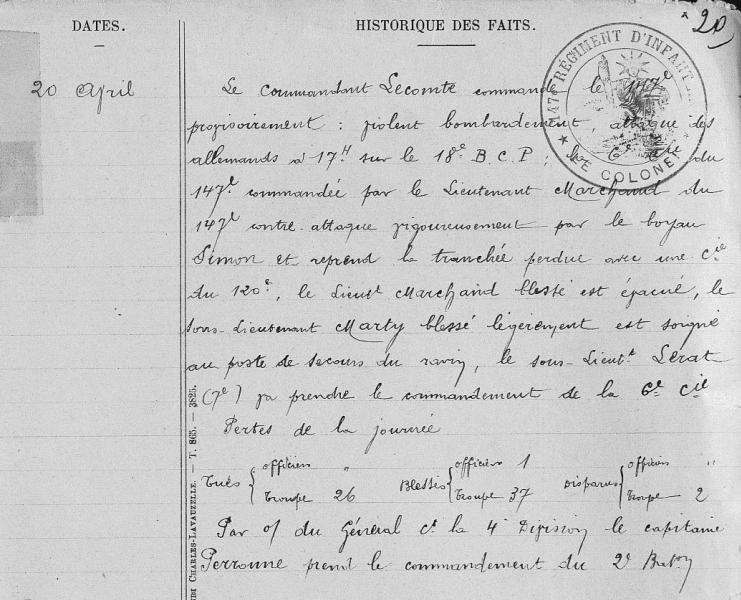 DATES.
HISTORIQUE DES FAITS.
20
147e RÉGIMENT D'INFANT
LE COLONEL
20 April
Le commandant Lecomte commande le 147e
provisoirement : violent bombardement, attaque des
allemands à 17H sur le 18e B.C.P ; la 6e Cie du
147e commandée par le Lieutenant Marchand du
147e contre-attaque vigoureusement par le boyau
Simon et reprend la tranchée perdue avec une Cie
du 120e, le Lieutt Marchand blessé est évacué, le
sous-Lieutenant Marty blessé légèrement est soigné
au poste de secours du ravin, le sous-Lieutt Lerat
(7e) va prendre le commandement de la 6e Cie
Pertes de la journée
Tués { officiers " Blessés { officiers 1 Disparus { officiers "
Troupe 26 Troupe 37 Troupe 2
Par of du Général Ct la 4e Division le capitaine
Perronne prend le commandement du 2e Baton
CHARLES-LAVAUZELLE. — T. 865. — 3825.